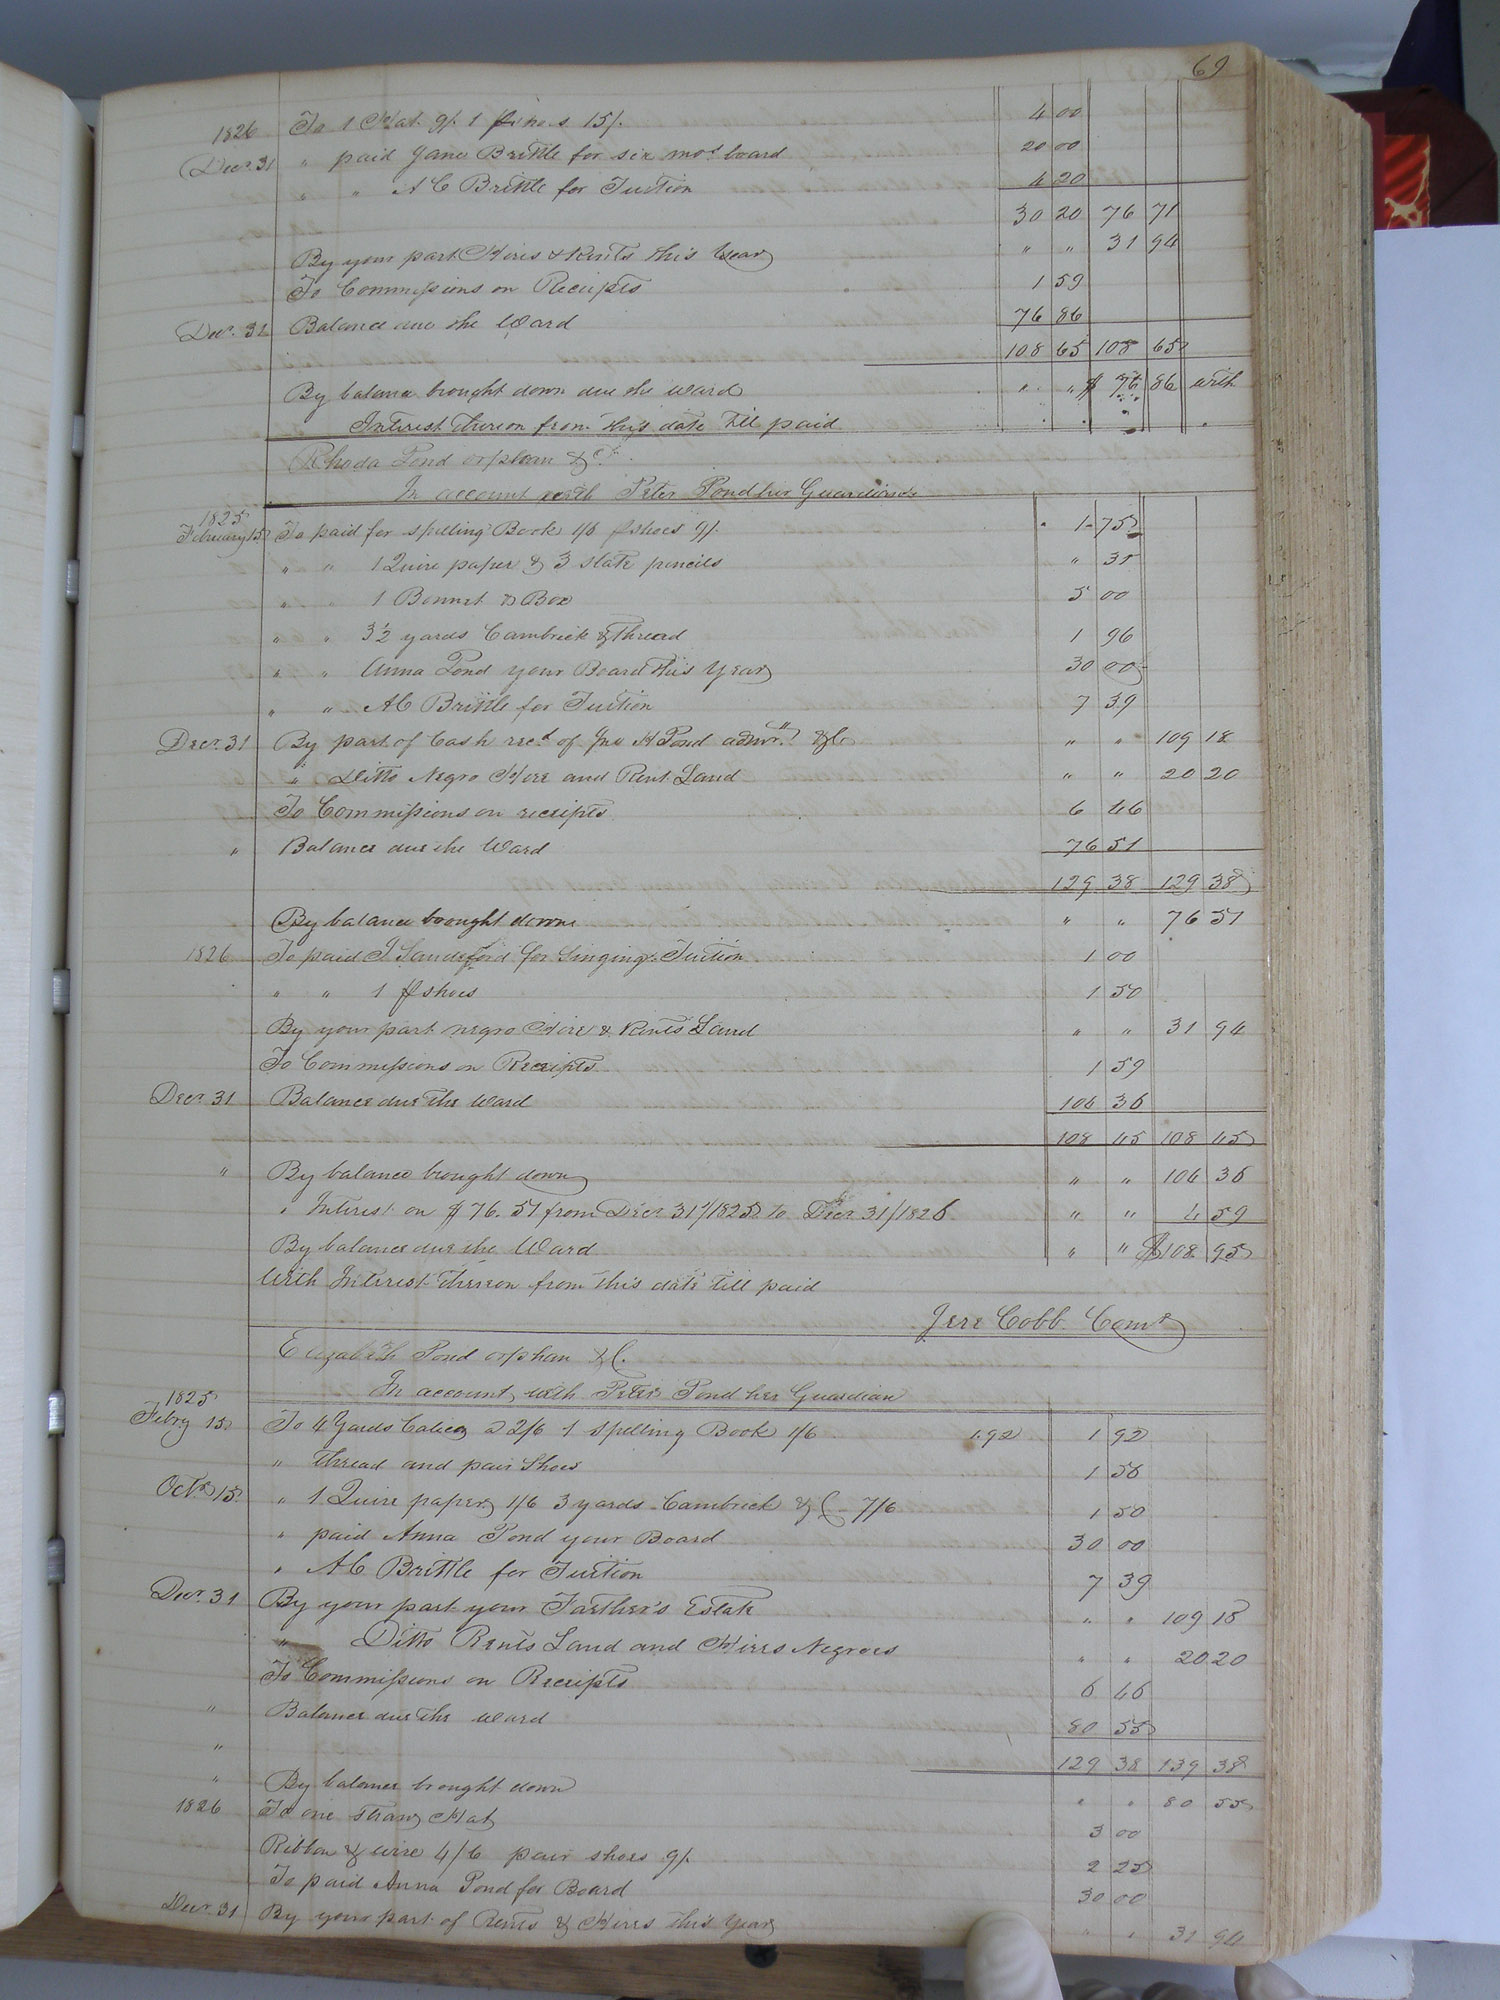 69
1826 To 1 Hat 9/. 1 pr shoes 15/. 4 00
Decr. 31 " paid Jane Brittle for six mos board 20 00
" " A C Brittle for Tuition 4 20
30 20 76 71
By your part Hires & Rents this Year " " 31 94
To Commissions on Receipts 1 59
Decr. 31 Balance due the Ward 76 86
108 65 108 65
By balance brought down due the ward " " $ 76 86 with
Interest thereon from this date till paid
Rhoda Pond orphan &c.
In account with Peter Pond her Guardian
1825
February 15 To paid for spelling Book 1/6 pr shoes 9/. 1 75
" " 1 Quire paper & 3 slate pencils " 31
" " 1 Bonnet & Box 5 00
" " 3½ yards Cambrick & Thread 1 96
" " Anna Pond your Board this Year 30 00
" " A C Brittle for Tuition 7 39
Decr. 31 By part of Cash recd of Jno H Pond admr. &C " " 109 18
" Ditto Negro Hire and Rent Land " " 20 20
To Commissions on receipts 6 46
" Balance due the Ward 76 51
129 38 129 38
By balance brought down " " 76 51
1826 To paid J Landsford for Singing Tuition 1 00
" " 1 pr shoes 1 50
By your part negro Hire & Rents Land " " 31 94
To Commissions on Receipts 1 59
Decr. 31 Balance due the Ward 104 36
108 45 108 45
" By balance brought down " " 104 36
" Interest on $76.51 from Decr 31st/1825 to Decr 31/1826 " " 4 59
By balance due the Ward " " $108 95
With Interest thereon from this date till paid
Jere Cobb Comr
Elizabeth Pond orphan &C.
In account with Peter Pond her Guardian
1825
Febry 15 To 4 Yards Calico @ 2/6 1 Spelling Book 1/6 1.92 1 92
" Thread and pair Shoes 1 56
Octr 15 " 1 Quire paper 1/6 3 yards Cambrick &C 7/6 1 50
" paid Anna Pond your Board 30 00
" A C Brittle for Tuition 7 39
Decr. 31 By your part your Farther's Estate " " 109 18
" Ditto Rents Land and Hires Negroes " " 20 20
To Commissions on Receipts 6 46
" Balance due the Ward 80 55
" 129 38 139 38
" By balance brought down " " 80 55
1826 To one Straw Hat 3 00
Ribbon & wire 4/6 pair shoes 9/. 2 25
To paid Anna Pond for Board 30 00
Decr. 31 By your part of Rents & Hires this Year " " 31 94